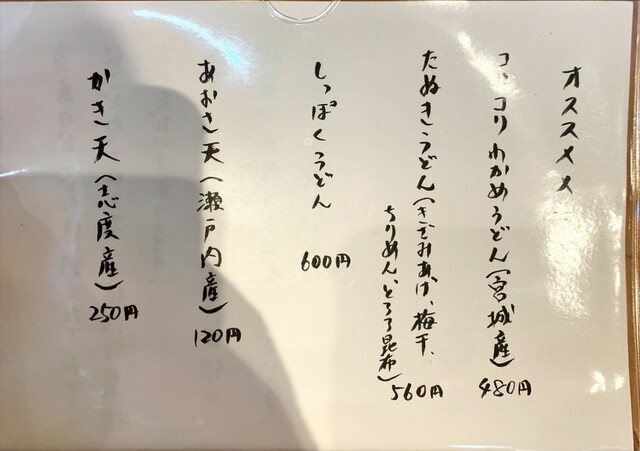 オススメ
コリコリわかめうどん(宮城産)
480円
たぬきうどん(きざみあげ、梅干、
ちりめん、とろろ昆布)
560円
しっぽくうどん
600円
あおさ天(瀬戸内産)
120円
かき天(志度産)
250円